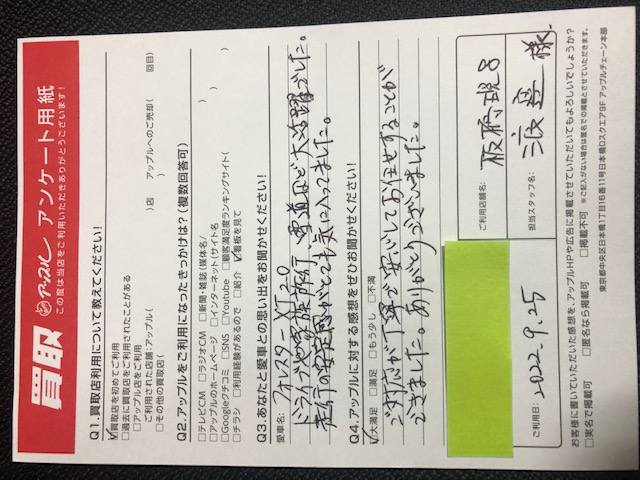 買取 アップル アンケート用紙
この度は当店をご利用いただきありがとうございます!
Q1.買取店利用について教えてください!
☑買取店を初めてご利用
□過去に買取店をご利用されたことがある
□アップル店をご利用
ご利用された店舗:アップル( )店( アップルへのご売却( 回目)
□その他の買取店( )
Q2.アップルをご利用になったきっかけは?(複数回答可)
□テレビCM □ラジオCM □新聞・雑誌(媒体名/ )
□アップルのホームページ □インターネット(サイト名 )
□Googleクチコミ □SNS □Youtube □顧客満足度ランキングサイト( )
□チラシ □利用経験があるので □紹介 ☑看板を見て
Q3.あなたと愛車との思い出をお聞かせください!
愛車名: フォレスター XT 2.0
ドライブや家族旅行、雪道など大活躍でした。
走行の安定感がとても気に入ってました。
Q4.アップルに対する感想をぜひお聞かせください!
☑大満足 □満足 □もう少し □不満
ご対応が丁寧で安心してお任せすることが
できました。ありがとうございました。
ご利用店舗名:
担当スタッフ名: 渡邉 様
ご利用日: 2022.9.25
お客様に書いていただいた感想を、アップルHPや広告に掲載させていただいてもよろしいでしょうか?
□実名で掲載可 □匿名なら掲載可 □掲載不可 ※ご記入がない場合は匿名での掲載とさせていただきます。
東京都中央区日本橋1丁目16番11号日本橋Dスクエア9F アップルチェーン本部